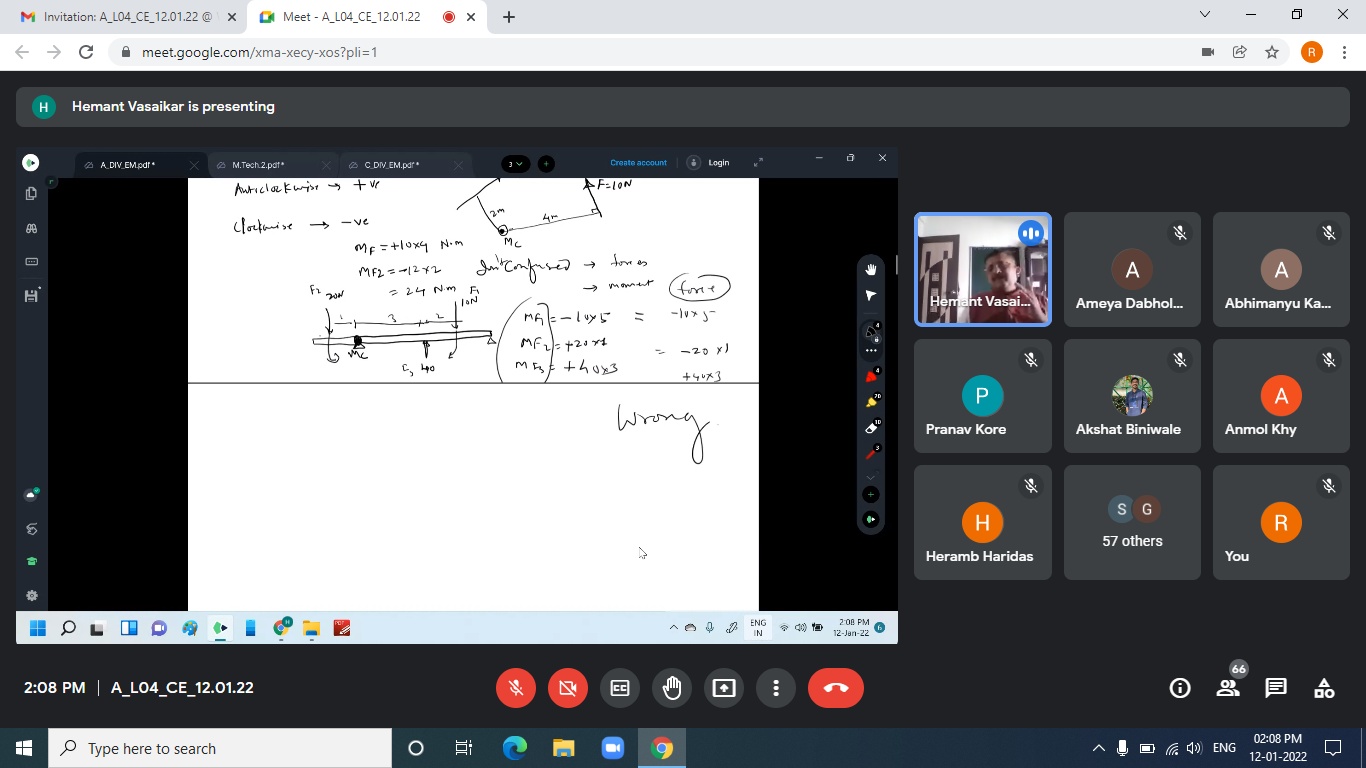 Invitation: A_L04_CE_12.01.22 @
Meet - A_L04_CE_12.01.22
meet.google.com/xma-xecy-xos?pli=1
R
H
Hemant Vasaikar is presenting
A_DIV_EM.pdf*
M.Tech.2.pdf*
C_DIV_EM.pdf*
3
Create account
Login
Anticlockwise → +ve
F=10N
2m
4m
Clockwise → -ve
MC
MF = +10×4 N.m
MF2 = -12×2
Confused → forces
= 24 N.m
→ moment
force
F2 20N
F1 10N
1 3 2
MF1 = -10×5 = -10×5
MF2 = +20×1 = -20×1
MF3 = +40×3 +40×3
MC
40
Wrong
4
4
20
10
3
ENG
IN
2:08 PM
12-Jan-22
6
Hemant Vasai...
A
Ameya Dabhol...
A
Abhimanyu Ka...
P
Pranav Kore
Akshat Biniwale
A
Anmol Khy
H
Heramb Haridas
S G
57 others
R
You
2:08 PM | A_L04_CE_12.01.22
CC
66
Type here to search
ENG
02:08 PM
12-01-2022